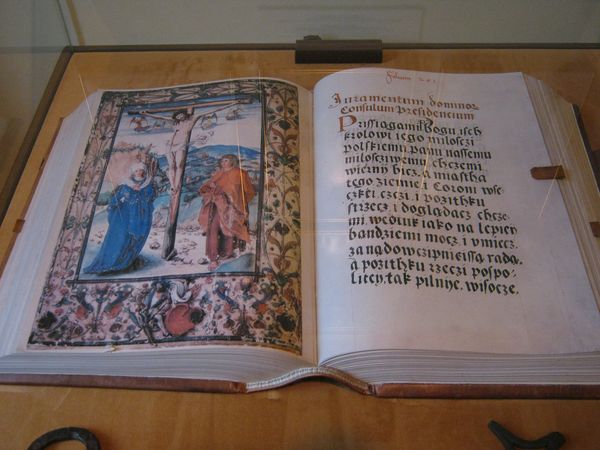 Iuramentum dominor
Consulum Presidencium
Przssiągamÿ Bogu ÿ ich
krolowi iego miloszci
polskiemu panu nassemu
milosziwemu chczemi
wiernÿ bicz. a miastha
tego ziemie i Coroni wse
czkei czczi i pozithku
strzecz i doglądacz chcze
mi. wedluk iako na lepiey
bandziemi mocz i umiecz
zanądowczipnieissą radą
a pozithku rzeczi pospo-
litey, tak pilnye. wisocze.